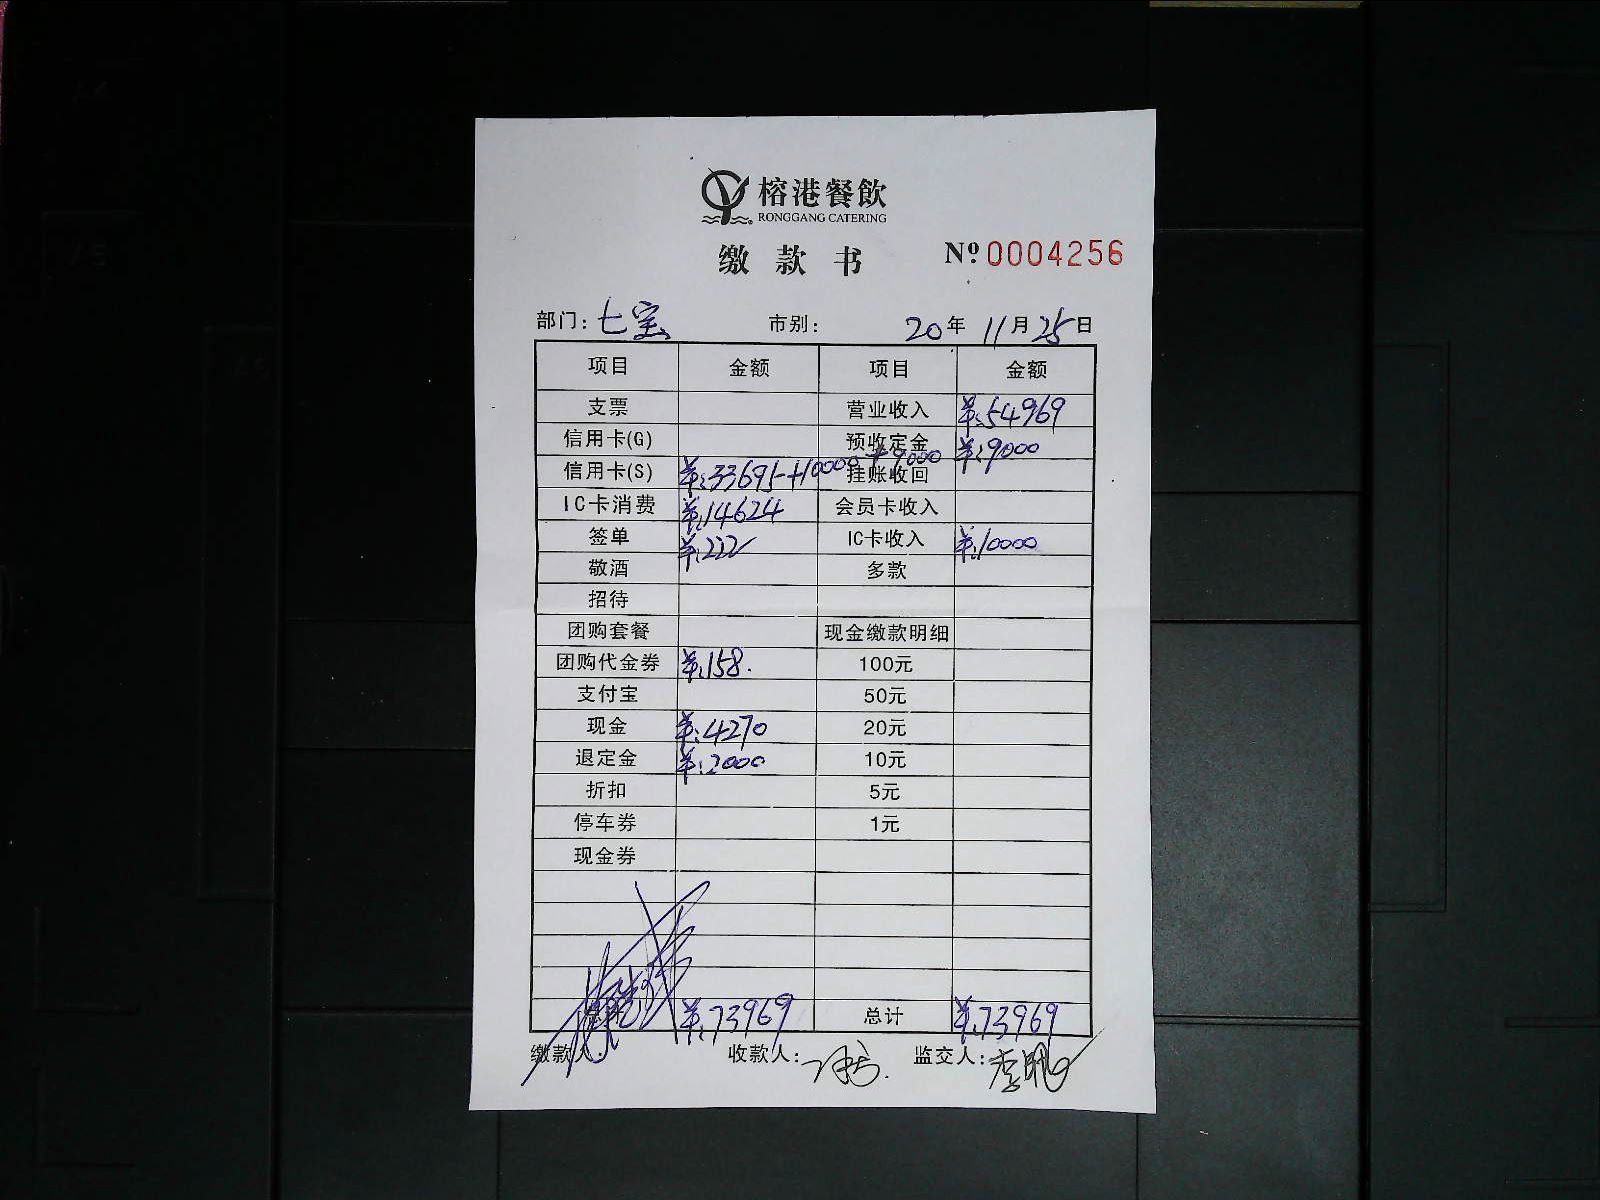 榕港餐飲
RONGGANG CATERING
缴款书 Nº 0004256
部门: 七宝 市别: 20年 11月 25日
项目 金额 项目 金额
支票 营业收入 ¥:54969
信用卡(G) 预收定金 ¥:9000
信用卡(S) ¥:33695+10000+9000 挂账收回
IC卡消费 ¥:14624 会员卡收入
签单 ¥:222 IC卡收入 ¥:10000
敬酒 多款
招待
团购套餐 现金缴款明细
团购代金券 ¥:158.
支付宝 50元
100元
现金 ¥:4270 20元
退定金 ¥:2000 10元
折扣 5元
停车券 1元
现金券
¥:73969 总计 ¥:73969
缴款人: 收款人: 监交人: